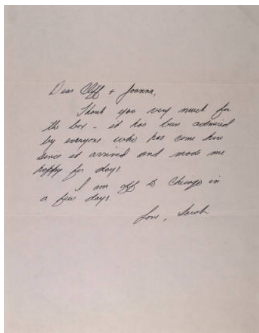 Dear Cliff & Joanna,
Thank you very much for
the box - it has been admired
by everyone who has come here
since it arrived and made me
happy for days
I am off to in
a few days
love, Sarah